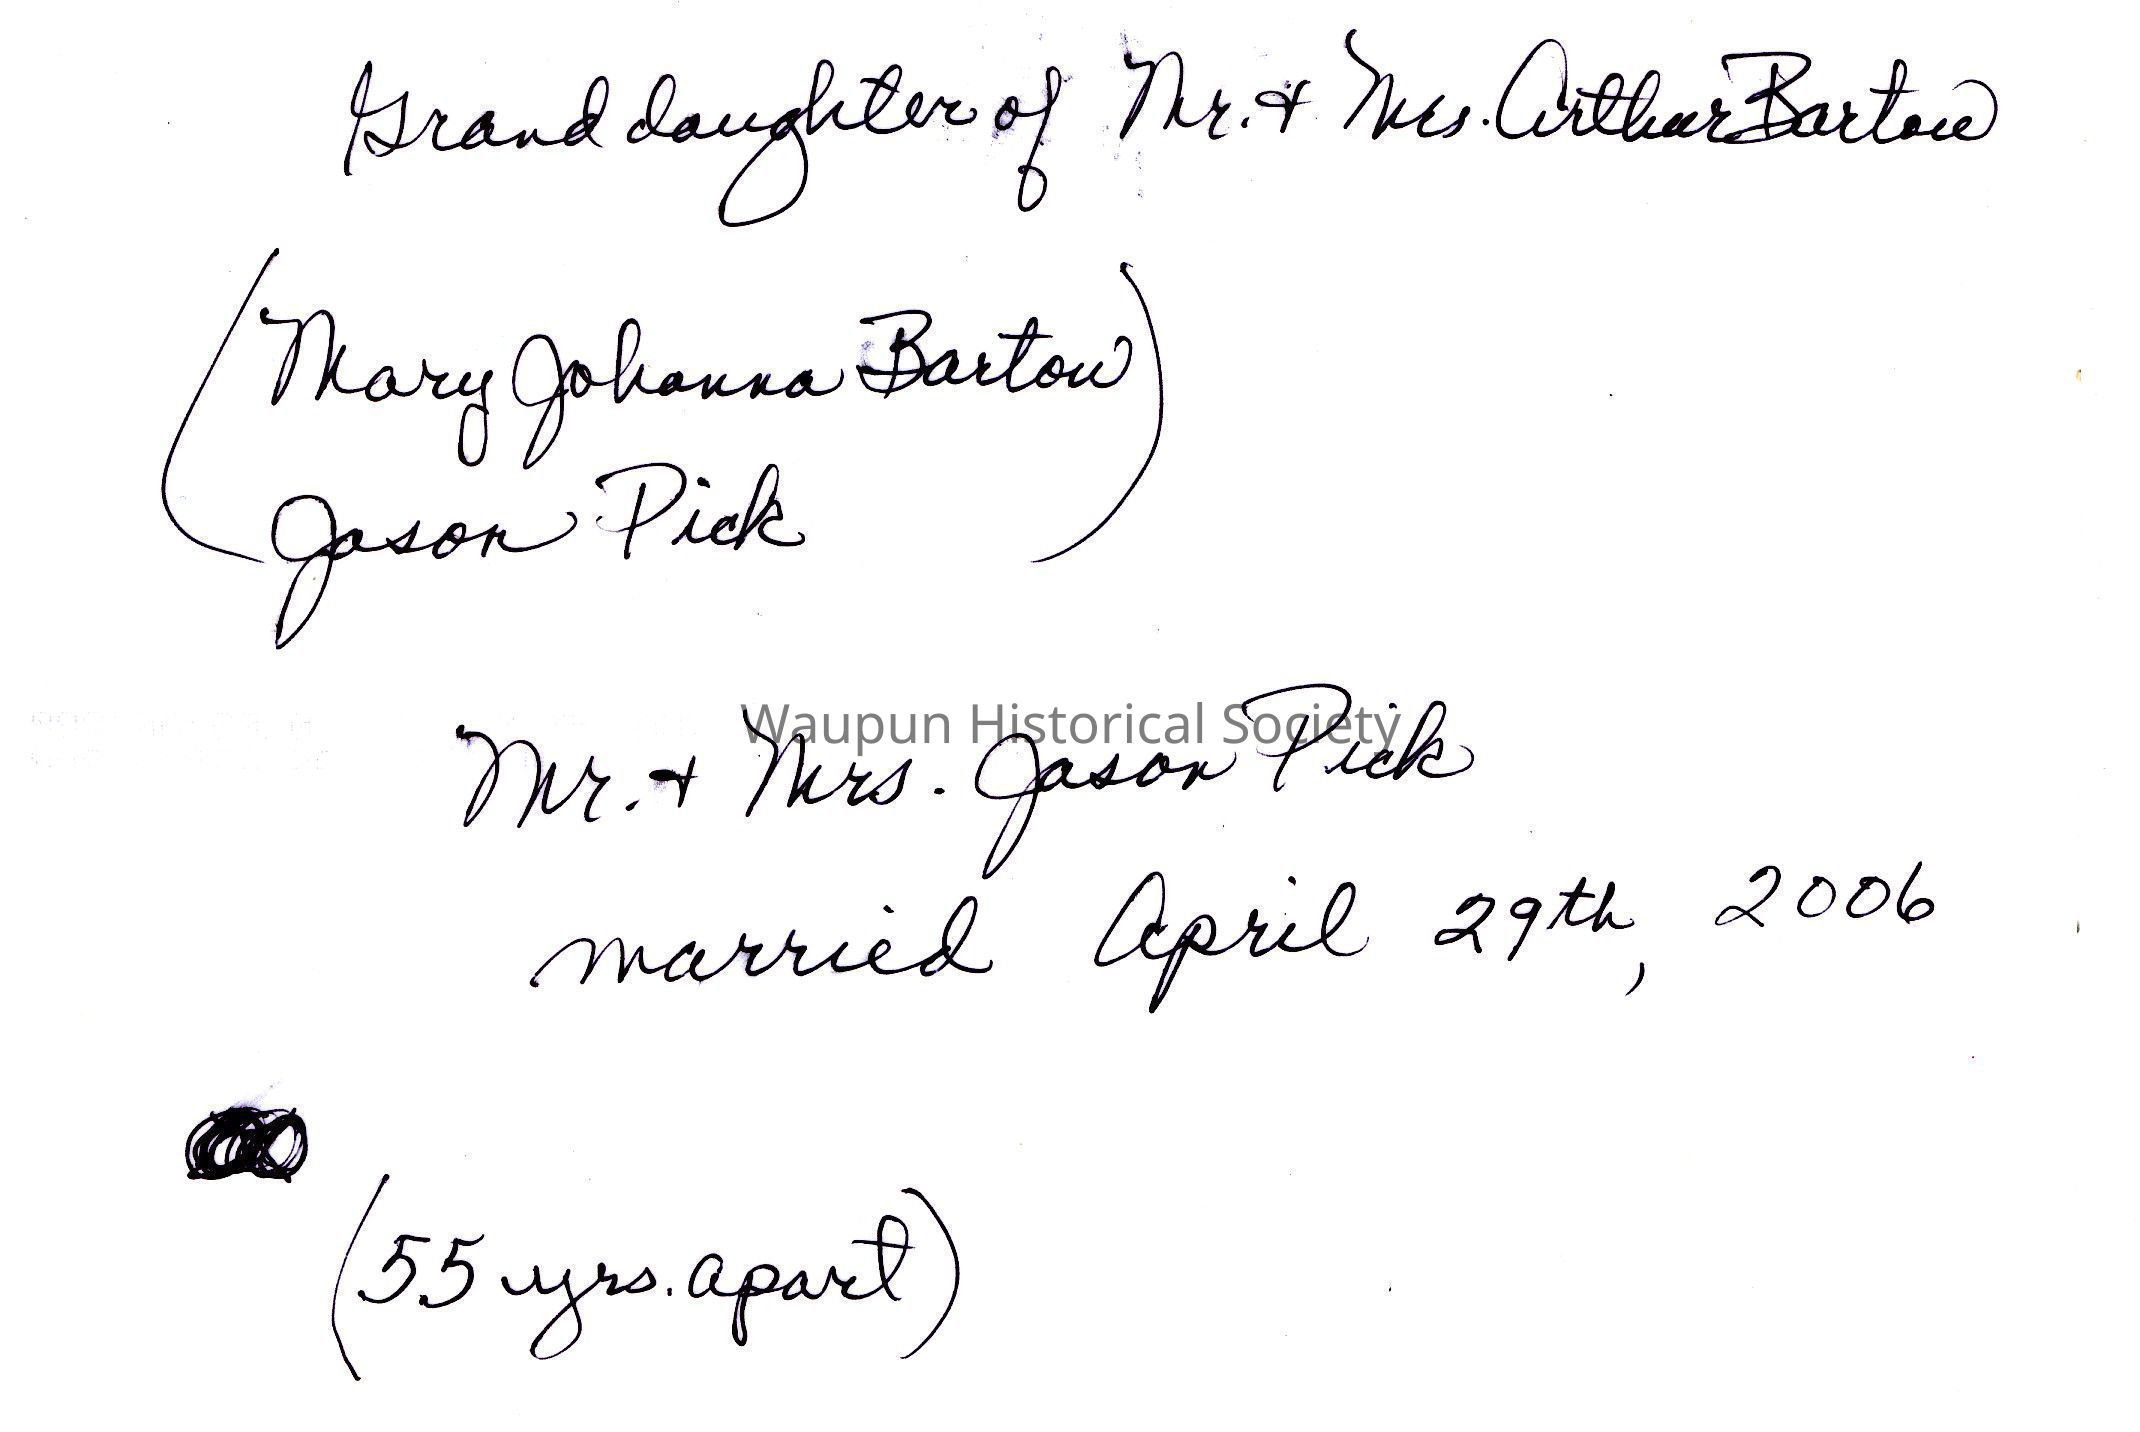 Granddaughter of Mr. + Mrs. Arthur Bartow
(Mary Johanna Bartow
Jason Pick)
Waupun Historical Society
Mr. + Mrs. Jason Pick
married April 29th, 2006
(55 yrs. apart)